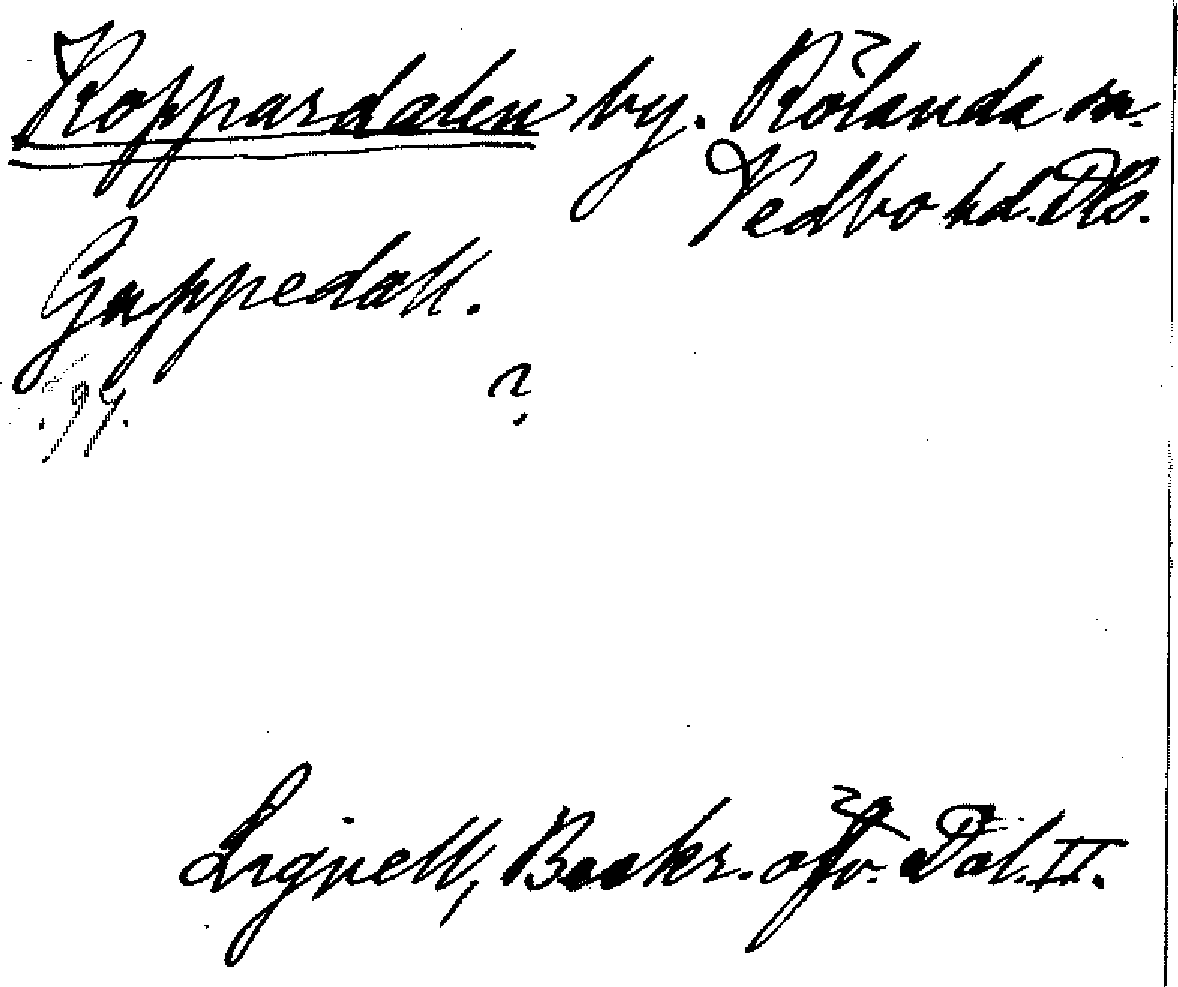 Koppardalen by. Rölanda sn.
Vedbo hd. Dls.
Guppedall.
?
Lignell, Beskr. öfv. Dal. II.